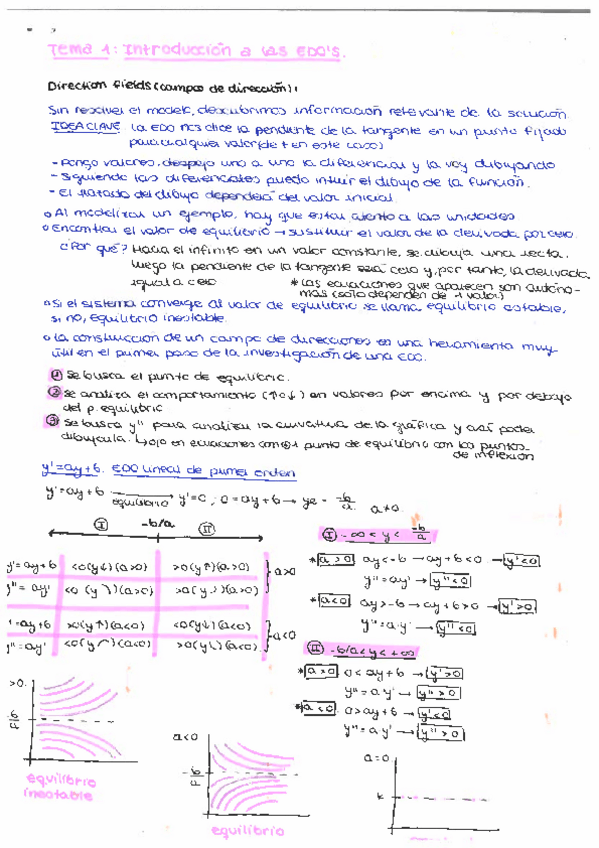 Tema 1: Introducción a las EDO'S.
Direction fields (campos de dirección):
Sin resolver el modelo, descubrimos información relevante de la solución.
IDEA CLAVE La EDO nos dice la pendiente de la tangente en un punto fijado
para cualquier valor (de t en este caso)
- pongo valores, despejo uno a uno la diferencial y la voy dibujando
- Siguiendo las diferenciales puedo intuir el dibujo de la función.
- El trazado del dibujo dependerá del valor inicial.
Al modelizar un ejemplo, hay que estar atento a las unidades
Encontrar el valor de equilibrio → sustituir el valor de la derivada por cero.
¿Por qué? Hacia el infinito en un valor constante, se dibuja una recta.
luego la pendiente de la tangente será cero y, por tanto, la derivada
igual a cero
* Las ecuaciones que aparecen son autóno-
mas (sólo dependen de 1 valor)
Si el sistema converge al valor de equilibrio se llama equilibrio estable,
si no, equilibrio inestable.
La construcción de un campo de direcciones es una herramienta muy
útil en el primer paso de la investigación de una EDO.
① Se busca el punto de equilibrio.
② Se analiza el comportamiento (↑ o ↓) en valores por encima y por debajo
del p. equilibrio
③ Se busca y'' para analizar la curvatura de la gráfica y así poder
dibujarla. ↳ ojo en ecuaciones con ⊕1 punto de equilibrio con los puntos
de inflexión
y'=ay+b. EDO lineal de primer orden
y'=ay+b → equilibrio y'=0; 0=ay+b → ye = -b/a a≠0
Ⅰ -b/a Ⅱ
y'=ay+b <0(y↓)(a>0) >0(y↑)(a>0) a>0
y''=ay' <0(y⤵)(a>0) >0(y⤴)(a>0)
'=ay+b >0(y↑)(a<0) <0(y↓)(a<0) a<0
y''=ay' <0(y⌒)(a<0) >0(y⤴)(a<0)
Ⅰ -∞<y<-b/a
* a>0 ay<-b → ay+b<0 → y'<0
y''=ay' → y''<0
* a<0 ay>-b → ay+b>0 → y'>0
y''=a·y' → y''<0
Ⅱ -b/a<y<+∞
* a>0 0<ay+b → y'>0
y''=ay' → y''>0
* a<0 0>ay+b → y'<0
y''=ay' → y''>0
>0.
equilibrio
inestable
a<0
equilibrio
a=0
k